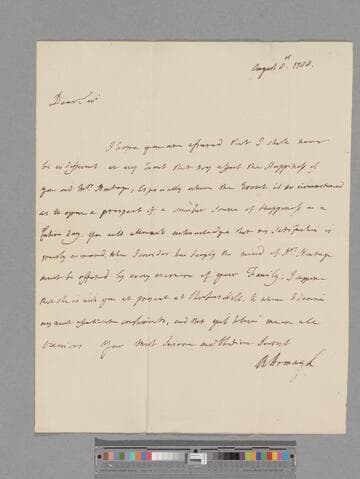 August 1st. 1788.
Dear Sir
I hope you are assured that I shall never
be indifferent at any Event that may affect the Happiness of
you and Mrs. Montagu, Especially when the Event is so circumstanced
as to open a prospect of a similar Source of Happiness in a
future day. You will allow me to acknowledge that my satisfaction is
greatly increased, when I consider how deeply the mind of Mrs. Montagu
must be affected by every increase of your Family; I suppose
that she is with you at present at, to whom I desire
my most affectionate compliments, and that you'll believe me on all
occasions Your Most Sincere and Obedient Servant
R Armagh